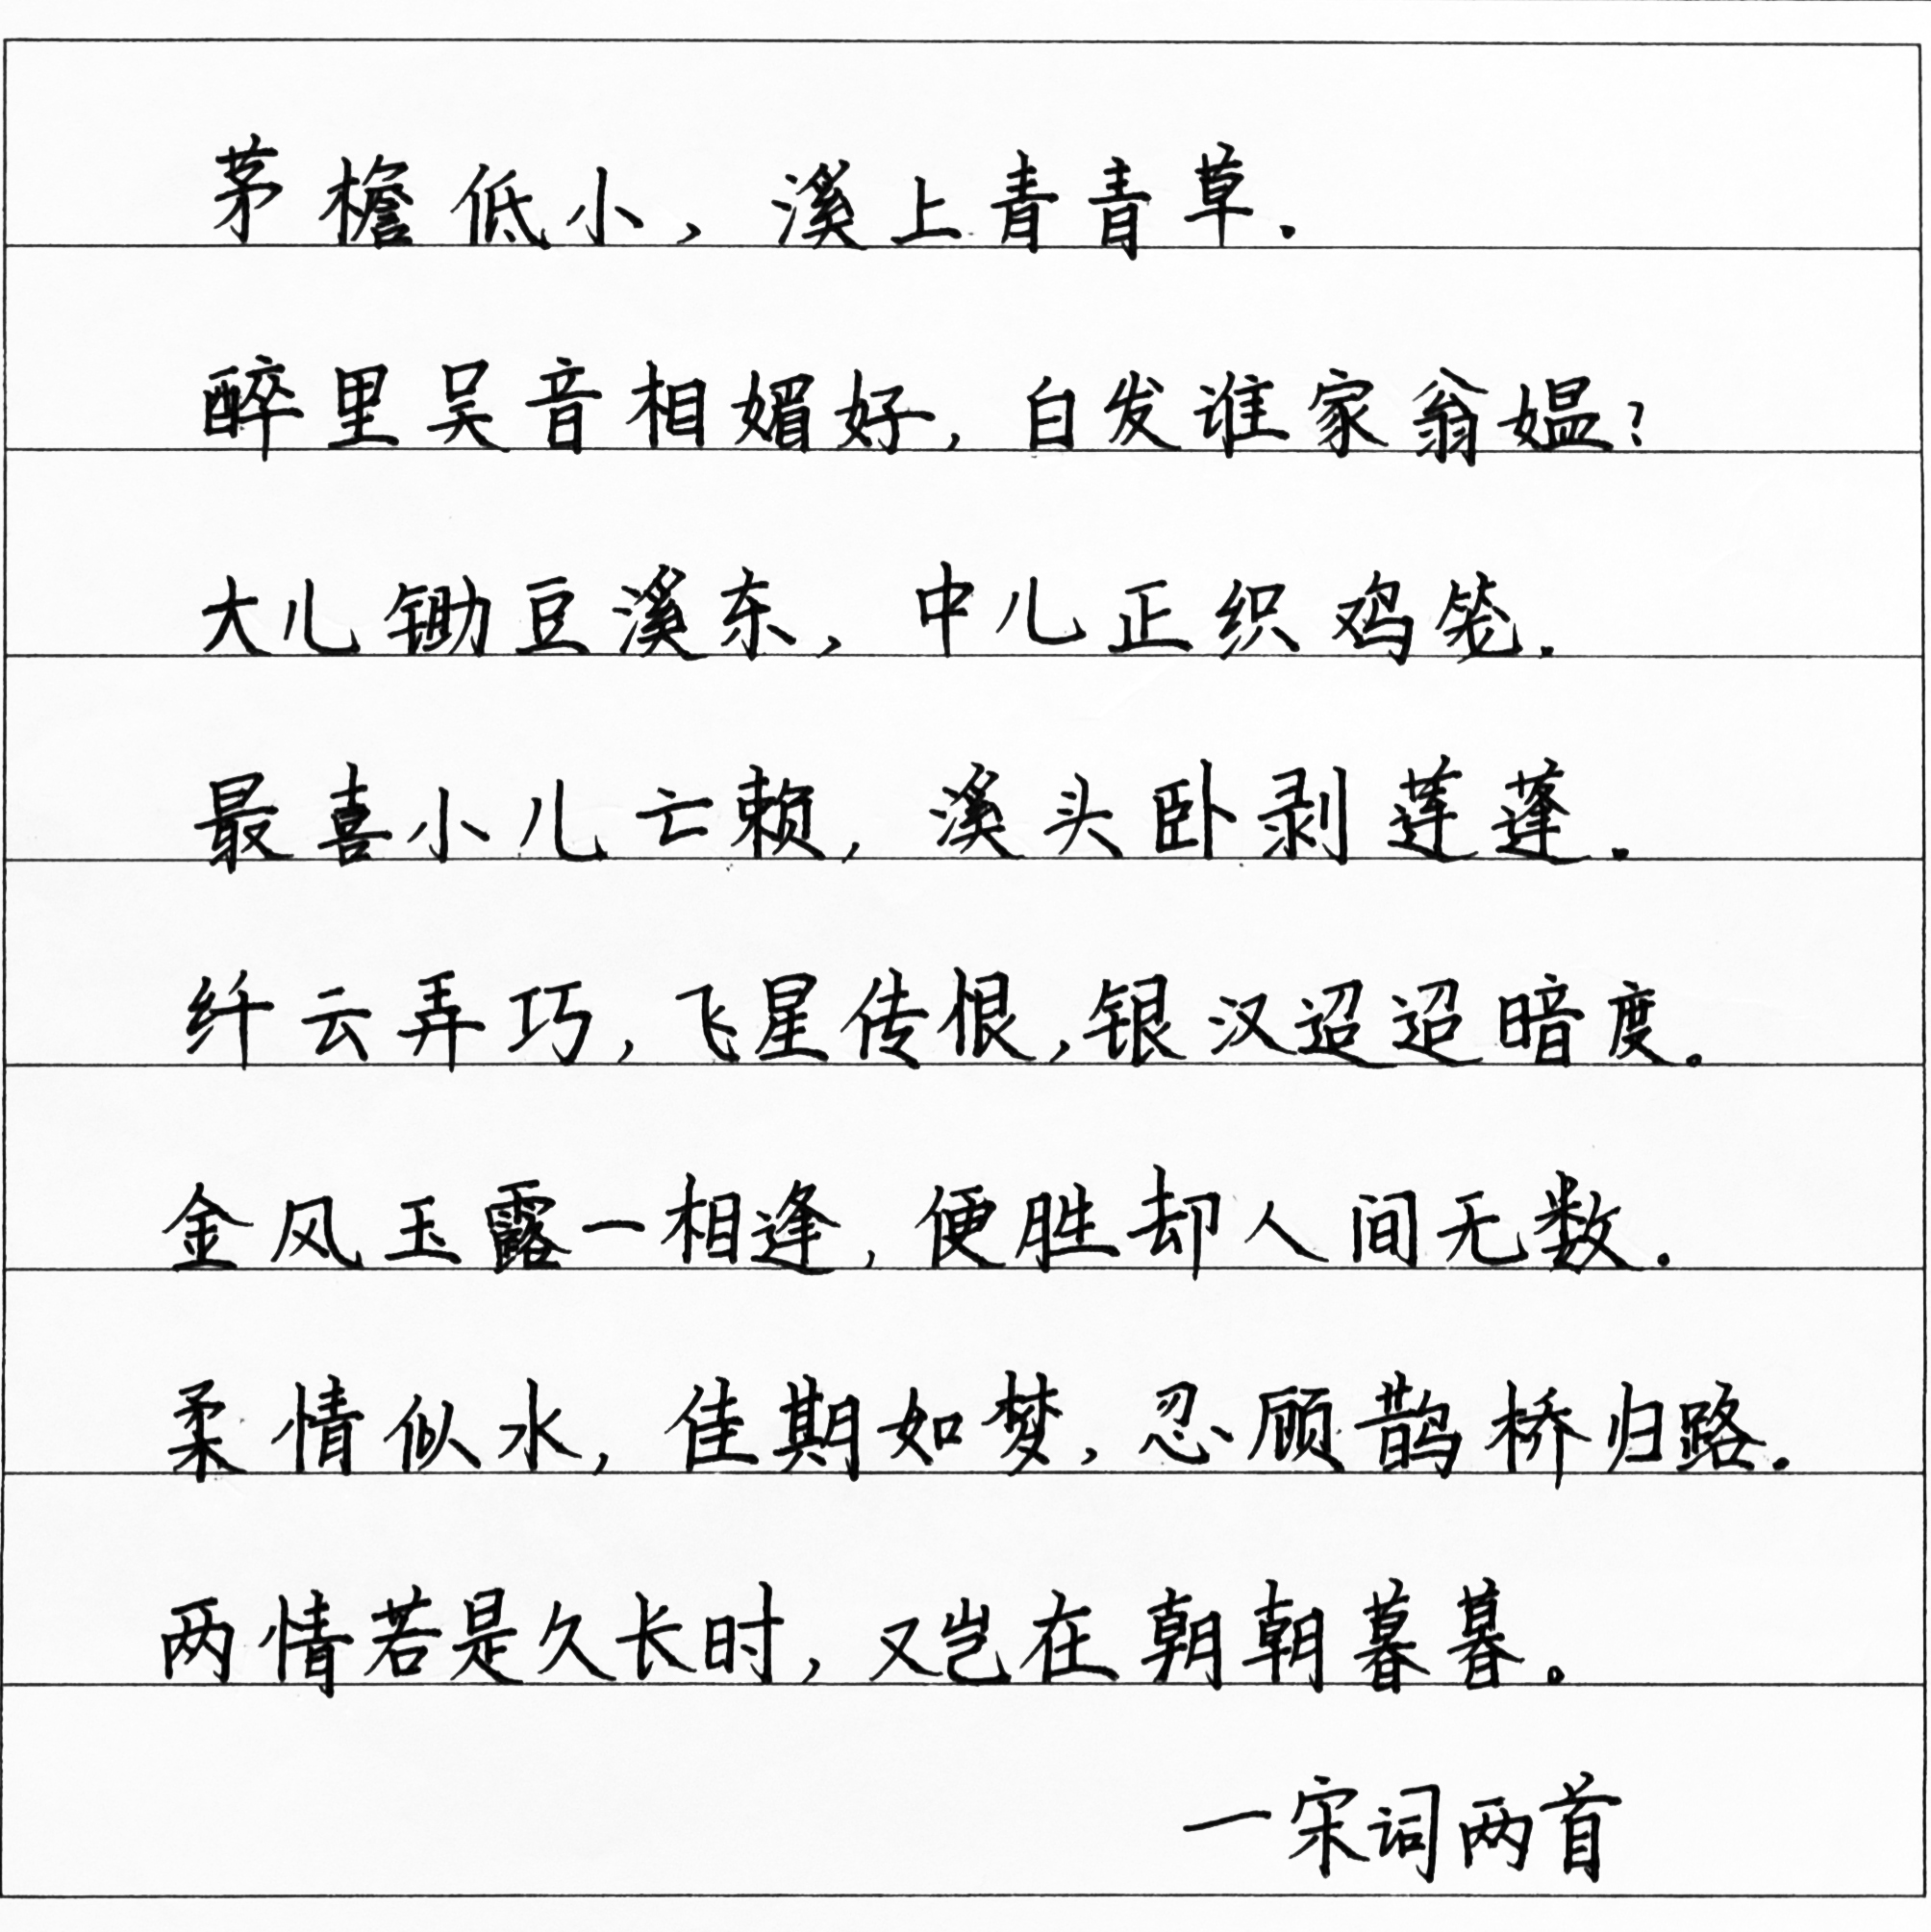 茅檐低小，溪上青青草.
醉里吴音相媚好，白发谁家翁媪？
大儿锄豆溪东，中儿正织鸡笼.
最喜小儿亡赖，溪头卧剥莲蓬.
纤云弄巧，飞星传恨，银汉迢迢暗度。
金风玉露一相逢，便胜却人间无数.
柔情似水，佳期如梦，忍顾鹊桥归路.
两情若是久长时，又岂在朝朝暮暮。
一宋词两首